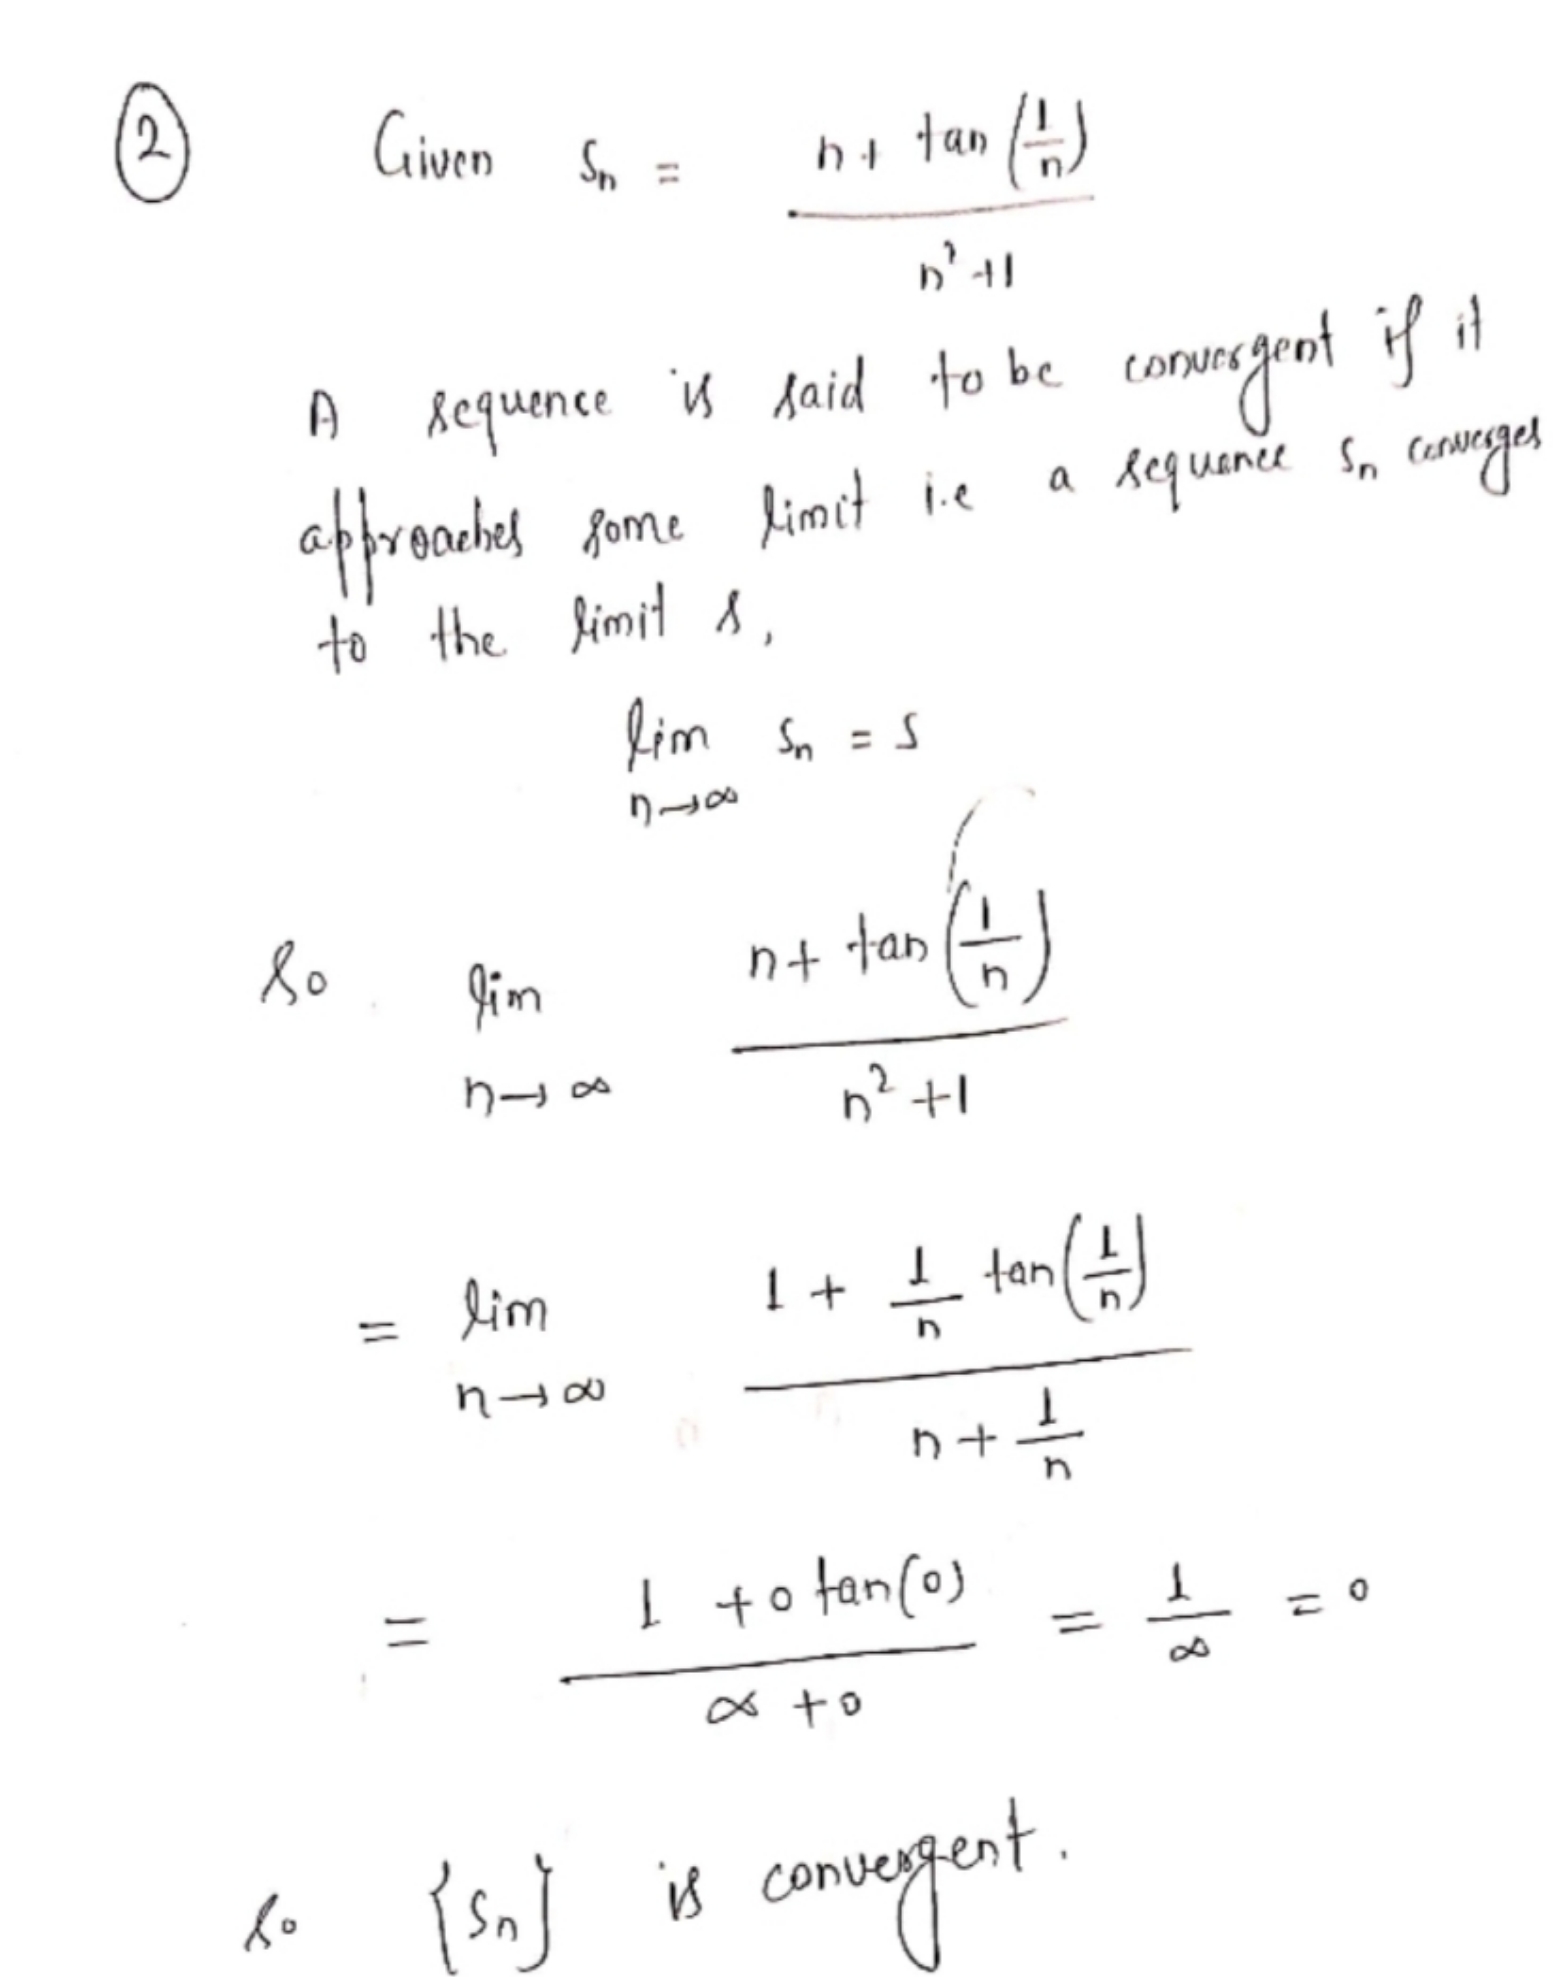 ② Given Sn = (n + tan(1/n)) / (n² + 1)
A sequence is said to be convergent if it
approaches some limit i.e a sequence Sn converges
to the limit s,
lim n→∞ Sn = S
So lim n→∞ (n + tan(1/n)) / (n² + 1)
= lim n→∞ (1 + 1/n tan(1/n)) / (n + 1/n)
= (1 + 0 tan(0)) / (∞ + 0) = 1/∞ = 0
So {Sn} is convergent.